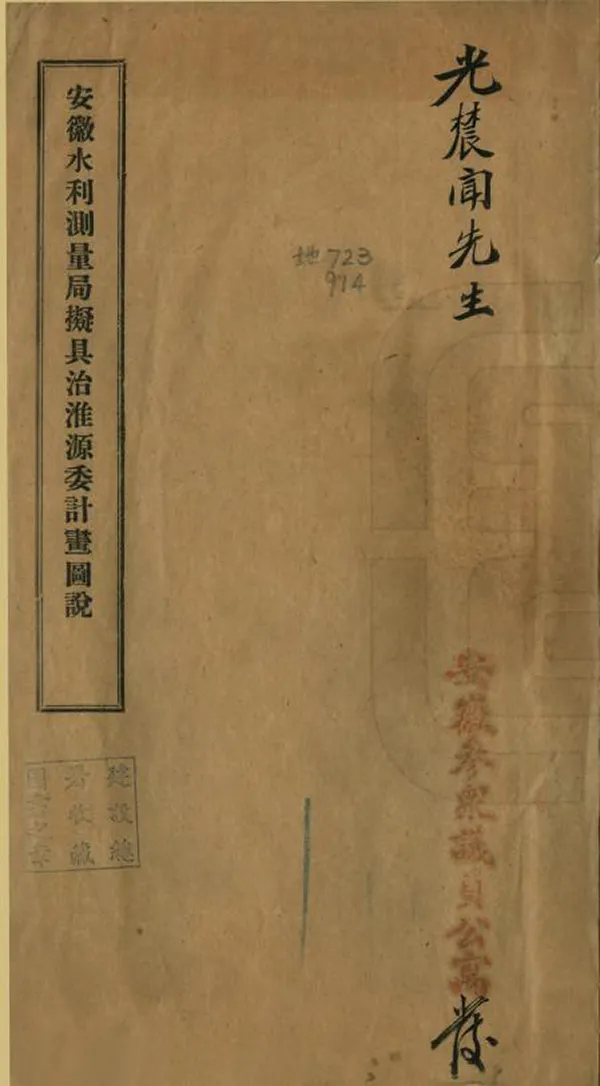 光農聞先生
安徽參眾議員公寓
地723
974
安徽水利測量局擬具治淮源委計畫圖說
建設總
署收藏
圖書之章